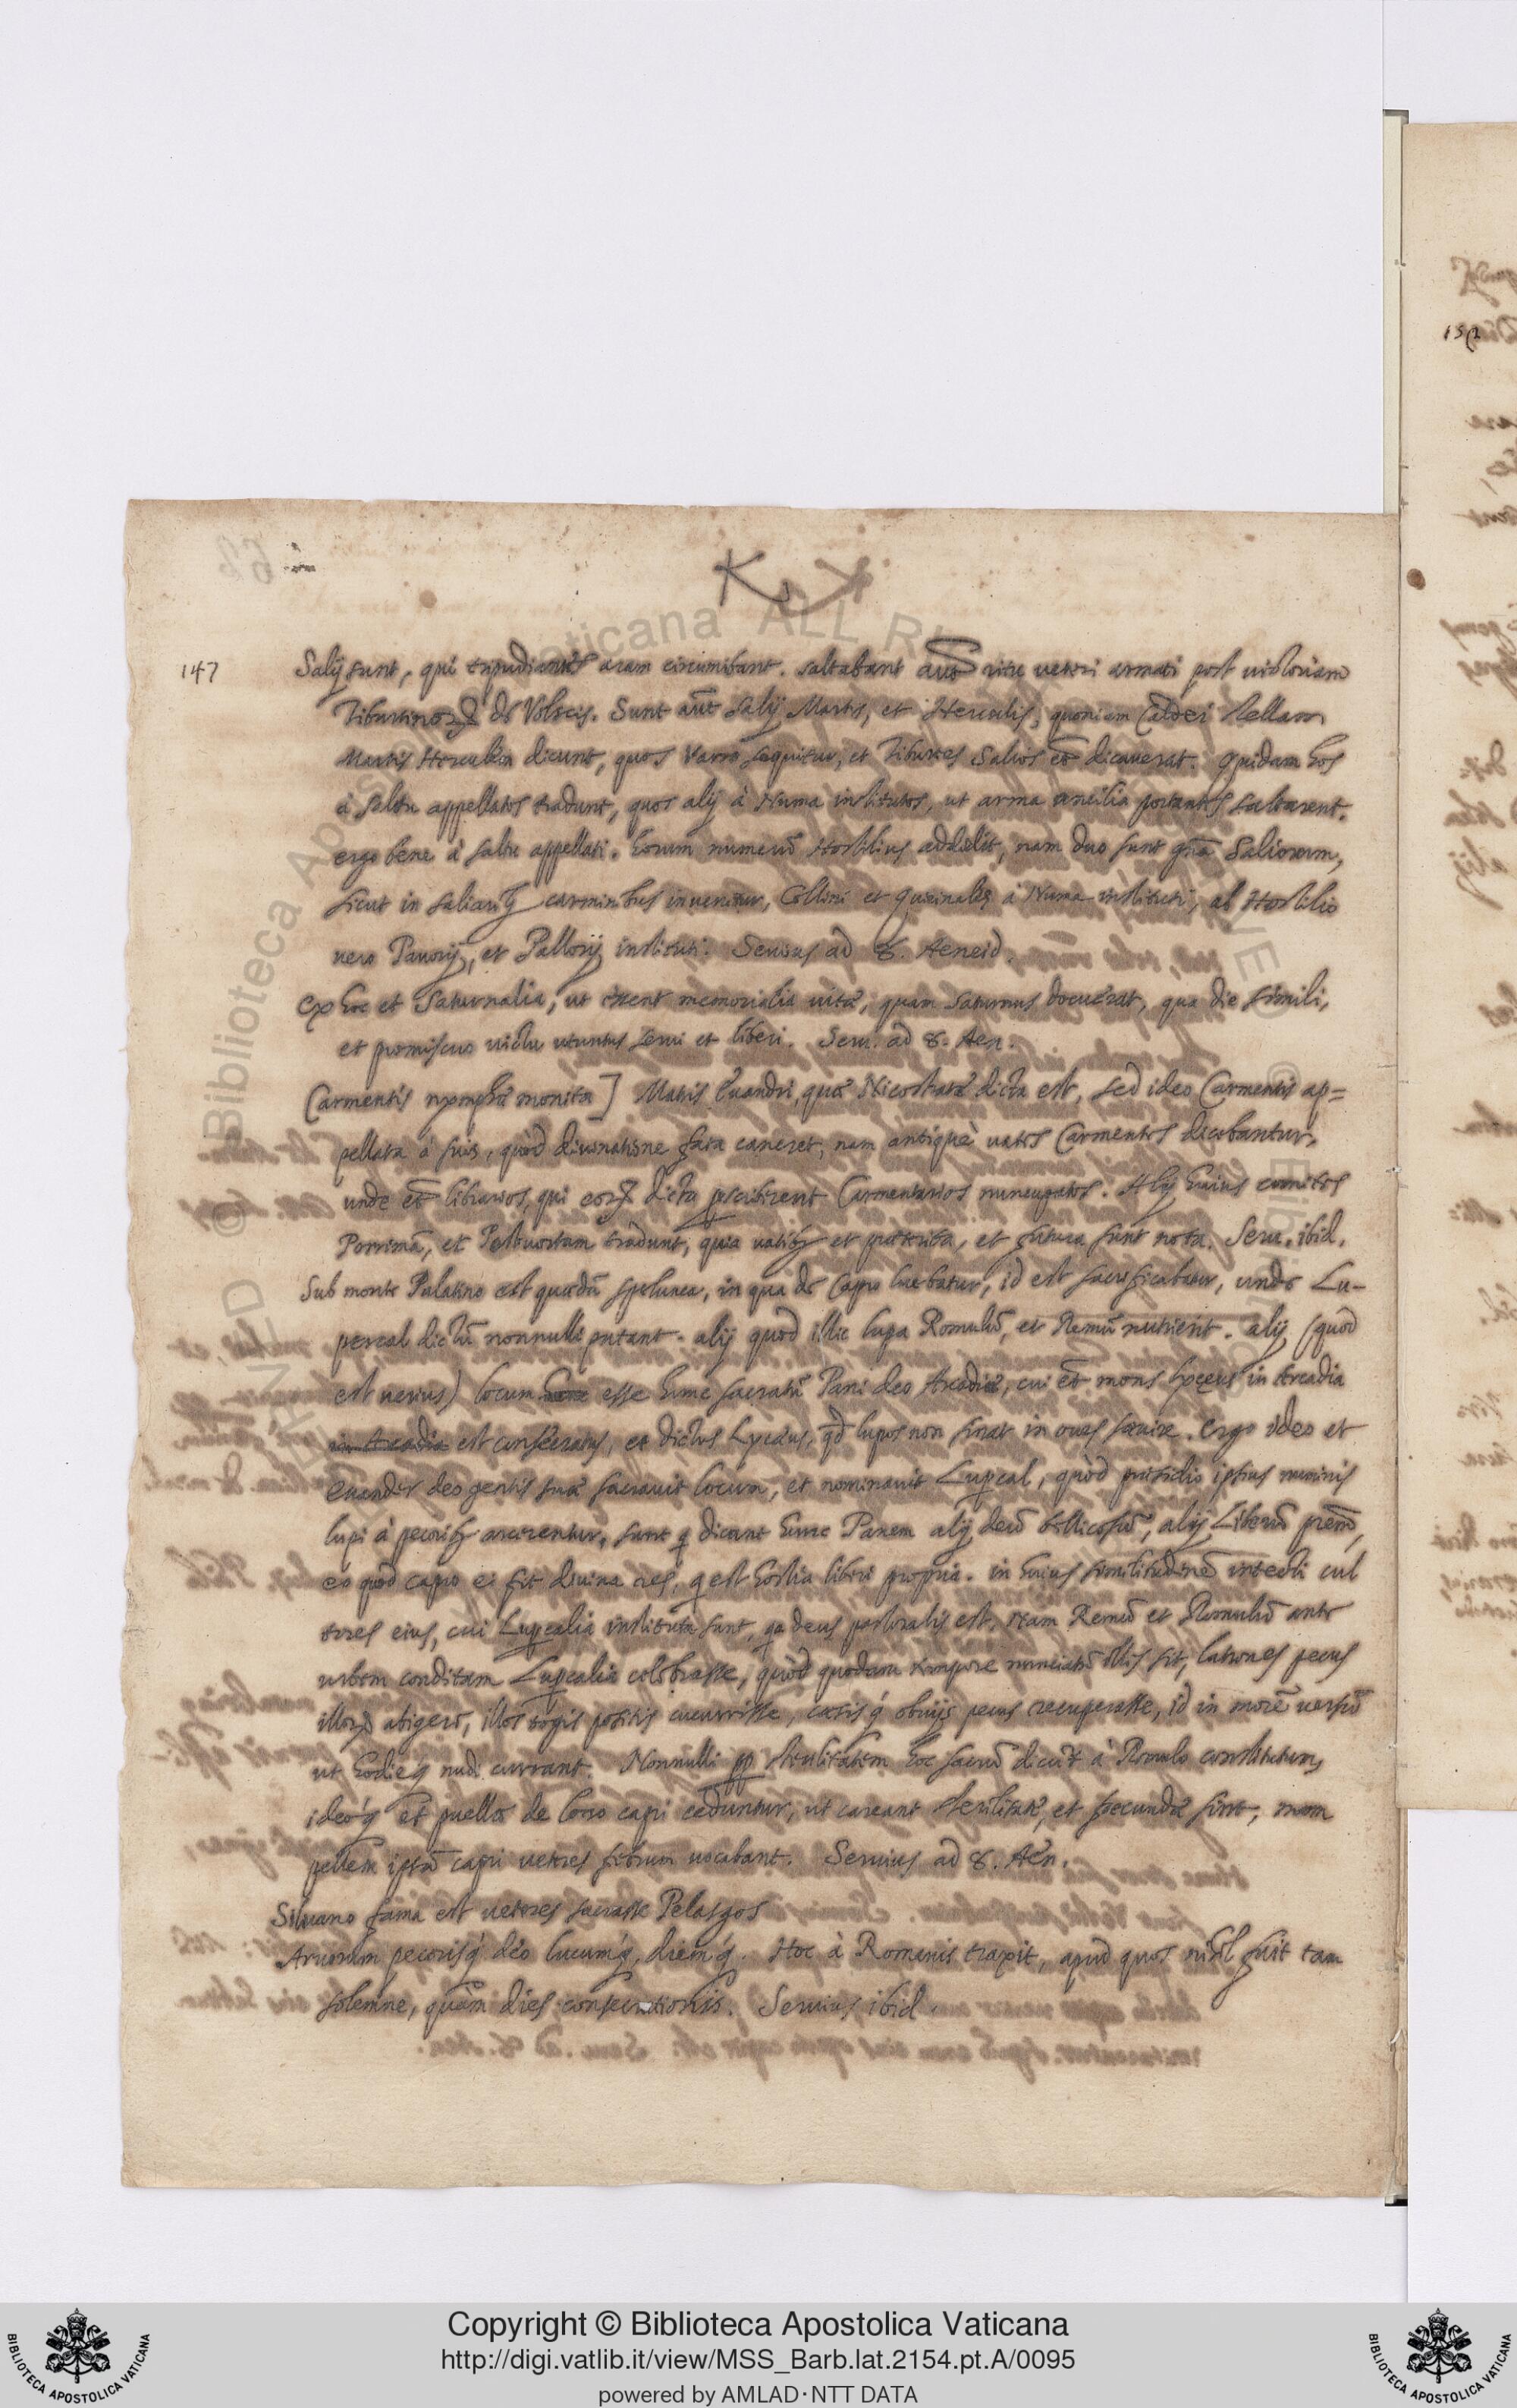 K
147
Salij sunt, qui tripudiantes aram circumibant. saltabant aut ritu veteri armati post victoriam
Tiburtinorꝝ de Volscis. Sunt aūt Salij Martis, et Herculis, quoniam Caldei stellam
Martis Herculeã dicunt, quos Varro sequitur, et Tiburtes Salios et dicaverat. quidam hos
à saltu appellatos tradunt, quos alij à Numa institutos, ut arma ancilia portantes saltarent.
ergo bene à saltu appellati. horum numerũ Hostilius addidit, nam duo sunt gña Saliorum,
sicut in saliaribꝫ carminibus invenitur, Collini et Quirinales à Numa instituti, ab Hostilio
vero Pavorij, et Pallorij instituti. Servius ad 8. Aeneid.
Ex hoc et Saturnalia, ut essent memorialia vitæ, quam Saturnus docuerat, qua die simili,
et promiscuo victu utuntur servi et liberi. Serv. ad 8. Aen.
Carmentis nymphæ monita] Matris Evandri, quæ Nicostrata dicta est, sed ideo Carmentis ap=
pellata à suis, quòd divinatione fata caneret, nam antiquè vates Carmentes dicebantur,
unde et librarios, qui eorꝝ dicta pscriberent Carmentarios nuncupatos. Alij huius comites
Porrimã, et Postvortam tradunt, quia vatibꝫ et præterita, et futura sunt nota. Serv. ibid.
Sub monte Palatino est quædã spelunca, in qua de capro luebatur, id est sacrificabatur, unde Lu-
percal dictũ nonnulli putant. alij quod illic lupa Romulũ, et Remũ nutrierit. alij (quod
est verius) locum esse hunc sacratũ Pani deo Arcadiæ, cui et mons Lycæus in Arcadia
in Arcadia est consecratus, et dictus Lycæus, qd lupos non sinat in oves sævire. ergo ideo et
Evander deo gentis suæ sacravit locum, et nominavit Lupcal, quòd præsidio ipsius numinis
lupi à pecoribꝫ arcerentur. sunt q dicant hunc Panem alij deũ bellicosũ, alij Liberũ prẽm,
eo quòd capro ei fit divina res, q est hostia liberi propria. in huius similitudinẽ intecti cul
tores eius, cui Lupcalia instituta sunt, qa deus pastoralis est, nam Remũ et Romulũ ante
urbem conditam Lupcalia celebrasse, quòd quodam tempore nunciatũ illis sit, latrones pecus
illorꝝ abigere, illos togis positis cucurrisse, cæsisq́ obvijs pecus recuperasse, id in morẽ versũ
ut hodieq nudi currant. Nonnulli pp sterilitatem hoc sacrũ dicũt à Romulo constitutum,
ideoq́ et puellæ de loro capri ceduntur, ut careant sterilitate, et fecundæ sint, nam
pellem ipsã capri veteres februm vocabant. Servius ad 8. Aen.
Silvano fama est veteres sacrasse Pelasgos
Arvorum pecorisq́ deo lucumq́, diemq́. Hoc à Romanis traxit, apud quos nihil fuit tam
solemne, quàm dies consecrationis. Servius ibid.
Copyright © Biblioteca Apostolica Vaticana
http://digi.vatlib.it/view/MSS_Barb.lat.2154.pt.A/0095
powered by AMLAD·NTT DATA
BIBLIOTECA APOSTOLICA VATICANA
BIBLIOTECA APOSTOLICA VATICANA